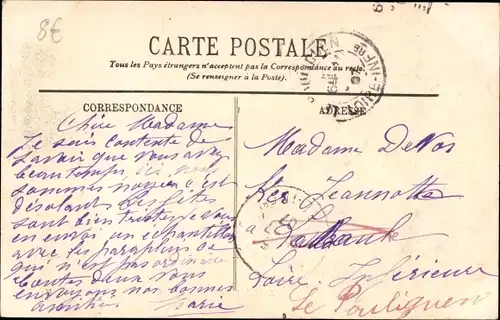 8€
CARTE POSTALE
Tous les Pays étrangers n'acceptent pas la Correspondance au recto.
(Se renseigner à la Poste).
CORRESPONDANCE
ADRESSE
Chère Madame
Je suis contente de
savoir que vous avez
beau temps, ici nous
sommes noyés c'est
désolant les fêtes
sont bien tristes je vous
en envoi un échantillon
avec les parapluies ce
qui n'est pas ordinaire
toutes deux vous
envoyons nos bonnes
amitiés Marie
Madame DeVos
Ker Jeannette
à
Loire Inférieure
Le Pouliguen
LOIRE-INFRE